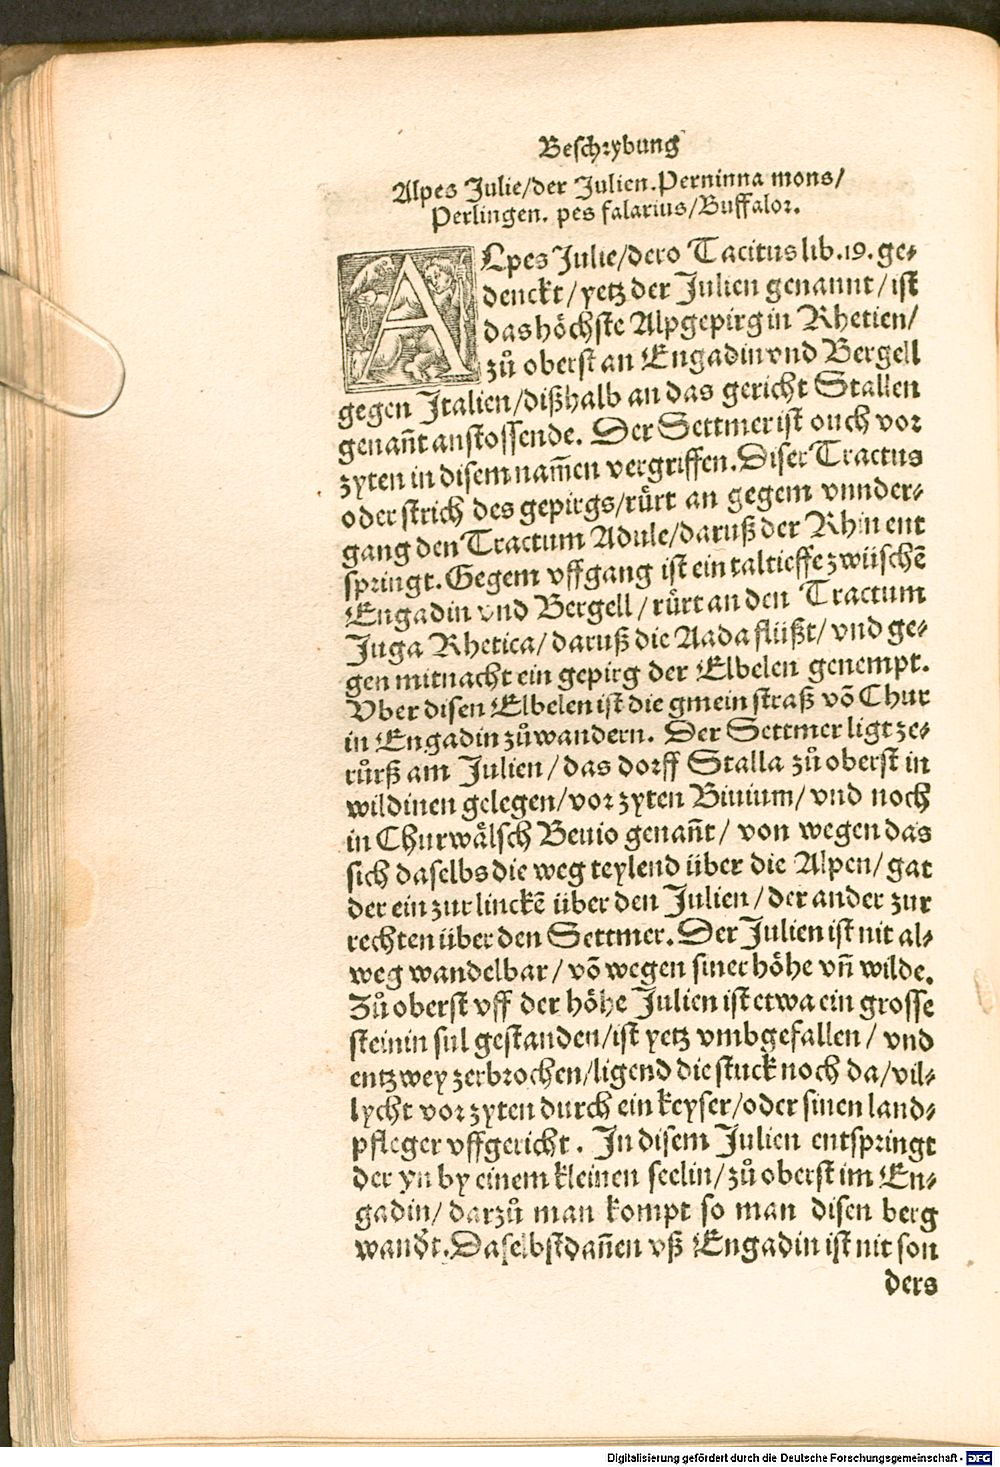 Beschrybung
Alpes Julie/der Julien. Perninna mons/
Perlingen. pes falarius/Buffalor.
ALpes Julie/dero Tacitus lib. 19. ge-
denckt/yetz der Julien genannt/ist
das höchste Alpgepirg in Rhetien/
zů oberst an Engadin vnd Bergell
gegen Italien/dißhalb an das gericht Stallen
genañt anstossende. Der Settmer ist ouch vor
zyten in disem nam̃en vergriffen. Diser Tractus
oder strich des gepirgs/rürt an gegem vnnder-
gang den Tractum Adule/daruß der Rhin ent
springt. Gegem vffgang ist ein tal tieffe zwüschẽ
Engadin vnd Bergell/rürt an den Tractum
Juga Rhetica/daruß die Aada flüßt/vnd ge-
gen mitnacht ein gepirg der Elbelen genempt.
Vber disen Elbelen ist die gmein straß võ Chur
in Engadin zů wandern. Der Settmer ligt ze-
růrß am Julien/das dorff Stalla zů oberst in
wildinen gelegen/vor zyten Biuium/vnd noch
in Churwälsch Beuio genañt/von wegen das
sich daselbs die weg teylend über die Alpen/gat
der ein zur linckẽ über den Julien/der ander zur
rechten über den Settmer. Der Julien ist nit al-
weg wandelbar/võ wegen siner höhe vñ wilde.
Zů oberst vff der höhe Julien ist etwa ein grosse
steinin sul gestanden/ist yetz vmbgefallen/vnd
entzwey zerbrochen/ligend die stuck noch da/vil-
lycht vor zyten durch ein keyser/oder sinen land-
pfleger vffgericht. In disem Julien entspringt
der yn by einem kleinen seelin/zů oberst im En-
gadin/darzů man kompt so man disen berg
wandt. Daselbst dañen vß Engadin ist nit son
ders
Digitalisierung gefördert durch die Deutsche Forschungsgemeinschaft - DFG